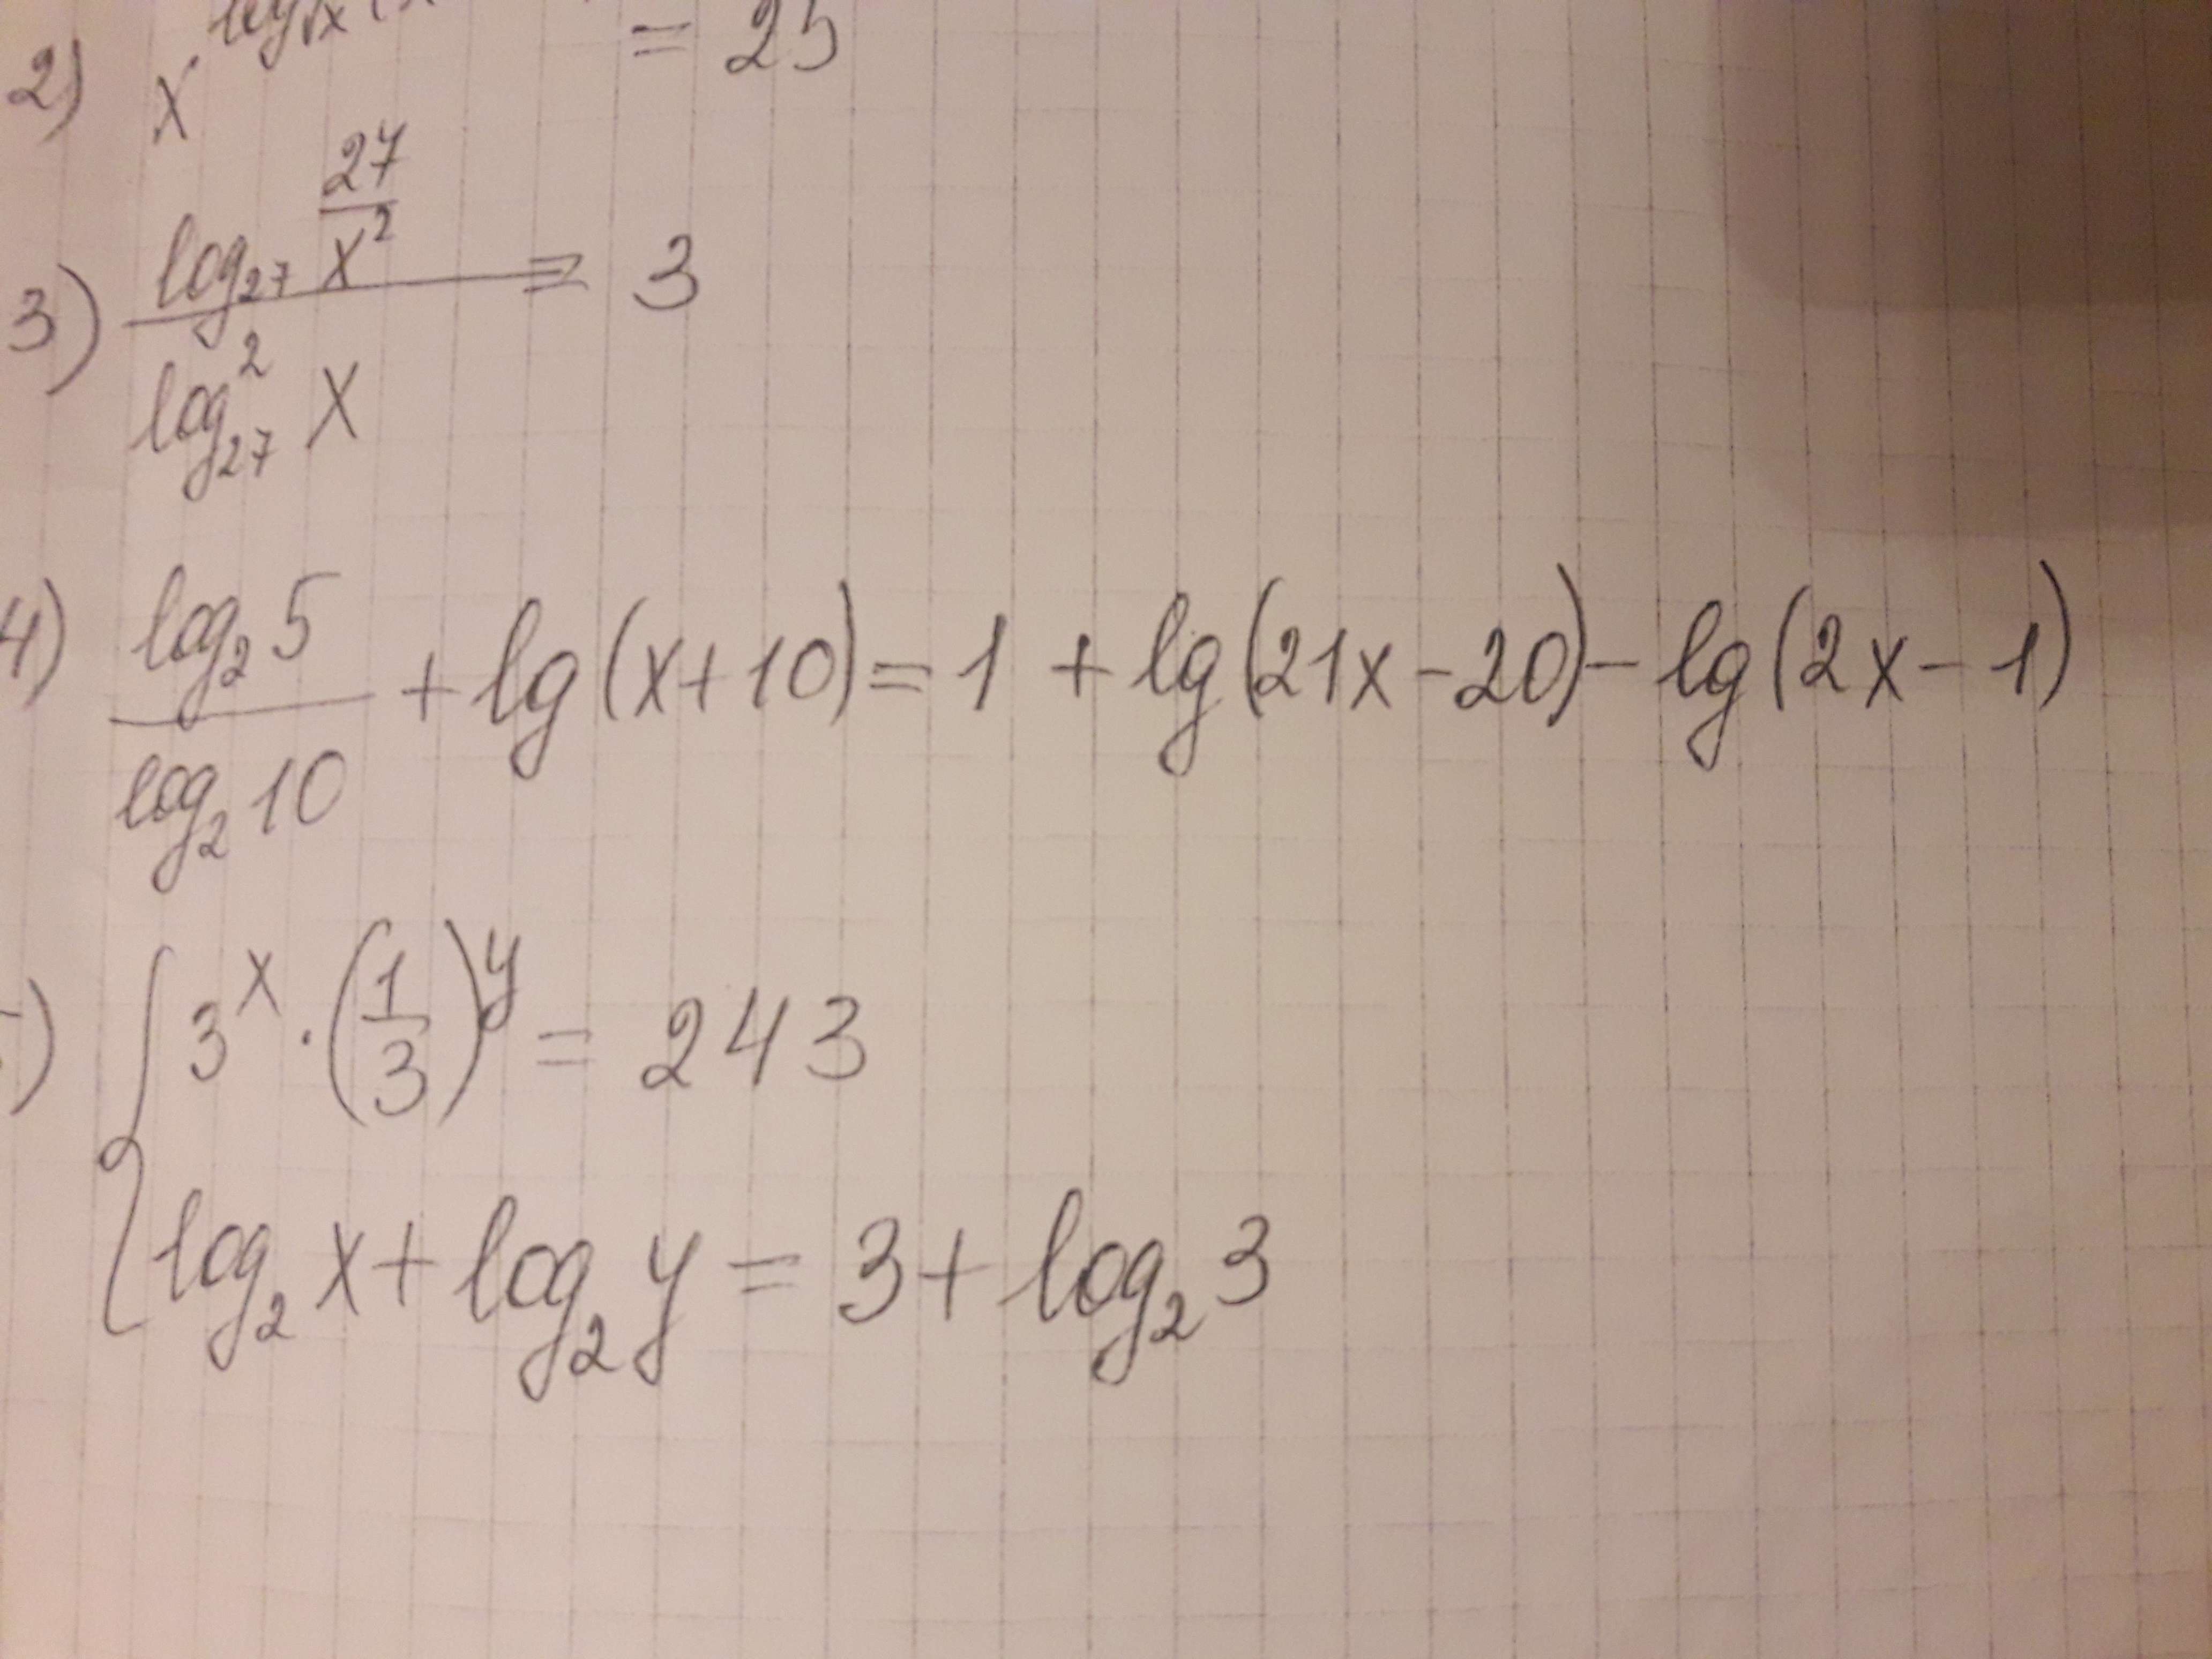 2) x^{log_{√x}(x} = 25
3) \frac{log_{27} \frac{27}{x^2}}{log_{27}^2 x} = 3
4) \frac{log_2 5}{log_2 10} + lg(x+10) = 1 + lg(21x-20) - lg(2x-1)
) { 3^x · (\frac{1}{3})^y = 243
log_2 x + log_2 y = 3 + log_2 3